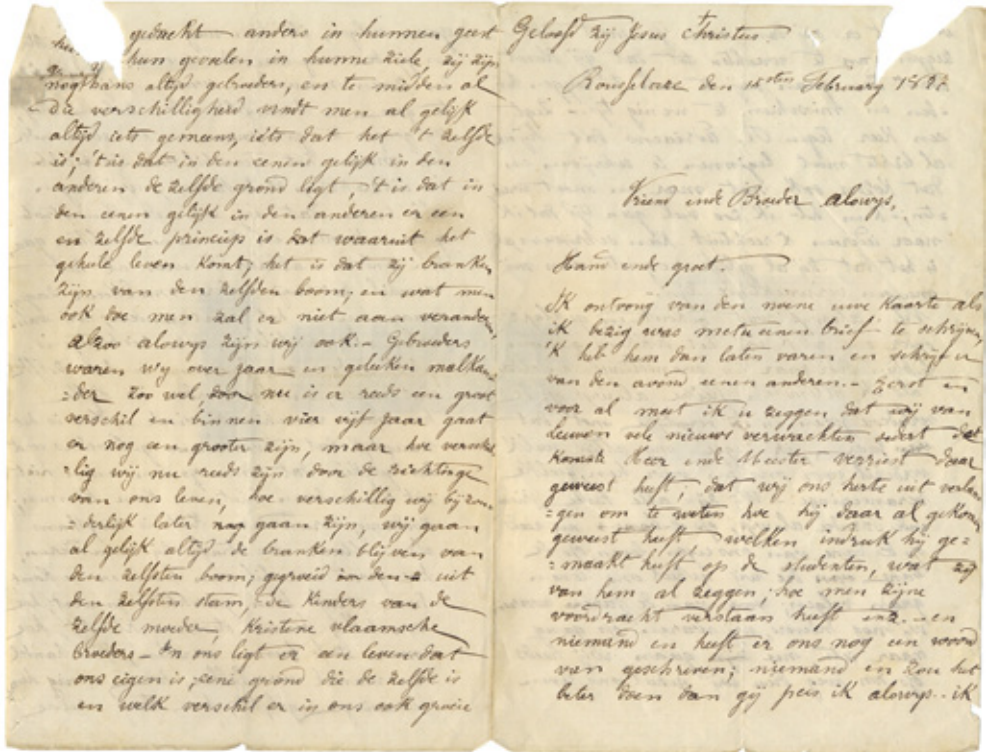 gedacht anders in hunnen geest
hun gevoelen in hunne ziele, zij zijn
nogthans altijd gebroeders, en te midden al
die verschilligheid vindt men al gelijk
altijd iets gemeens, iets dat het 't zelfde
is; 't is dat in den eenen gelijk in den
anderen de zelfde grond ligt, 't is dat in
den eenen gelijk in den anderen er een
en zelfde princiep is dat waaruit het
geheele leven komt; het is dat zij branken
zijn van den zelfden boom; en wat men
ook doe men zal er niet aan veranderen,
alzoo alowys zijn wij ook. – Gebroeders
waren wy over jaar en geleken malkan-
=der zoo wel, nu is er reeds een groot
verschil en binnen vier vijf jaar gaat
er nog een grooter zijn, maar hoe verschil
=lig wij nu reeds zijn door de richtinge
van ons leven, hoe verschillig wij byzon
=derlijk later gaan zijn, wij gaan
al gelijk altijd de branken blijven van
den zelfsten boom; gegroeid uit
den zelfsten stam, de kinders van de
zelfde moeder, Kristene vlaamsche
broeders – In ons ligt er een leven dat
ons eigen is; eene grond die de zelfde is
en welk verschil er in ons ook groeie
Geloofd zij Jesus Christus.
Rousselaere den 15sten February
Vriend ende Broeder alowys,
Hand ende groet.
Ik ontvong van den noene uwe kaarte als
ik bezig was met u eenen brief te schrijven,
'k heb hem dan laten varen en schrijf er
van den avond eenen anderen. – Eerst en
voor al moet ik u zeggen, dat wij van
Leuven vele nieuws verwachten sedert dat
Heer ende Meester verriest daar
geweest heeft, dat wij ons herte uit verlan
=gen om te weten hoe hij daar al gekomen
geweest heeft welken indruk hij ge=
=maakt heeft op de studenten, wat zij
van hem al zeggen; hoe men zijne
voordracht verstaan heeft enz. – en
niemand en heeft er ons nog een woord
van geschreven; niemand en zou het
beter doen dan gij peis ik alowys.. ik